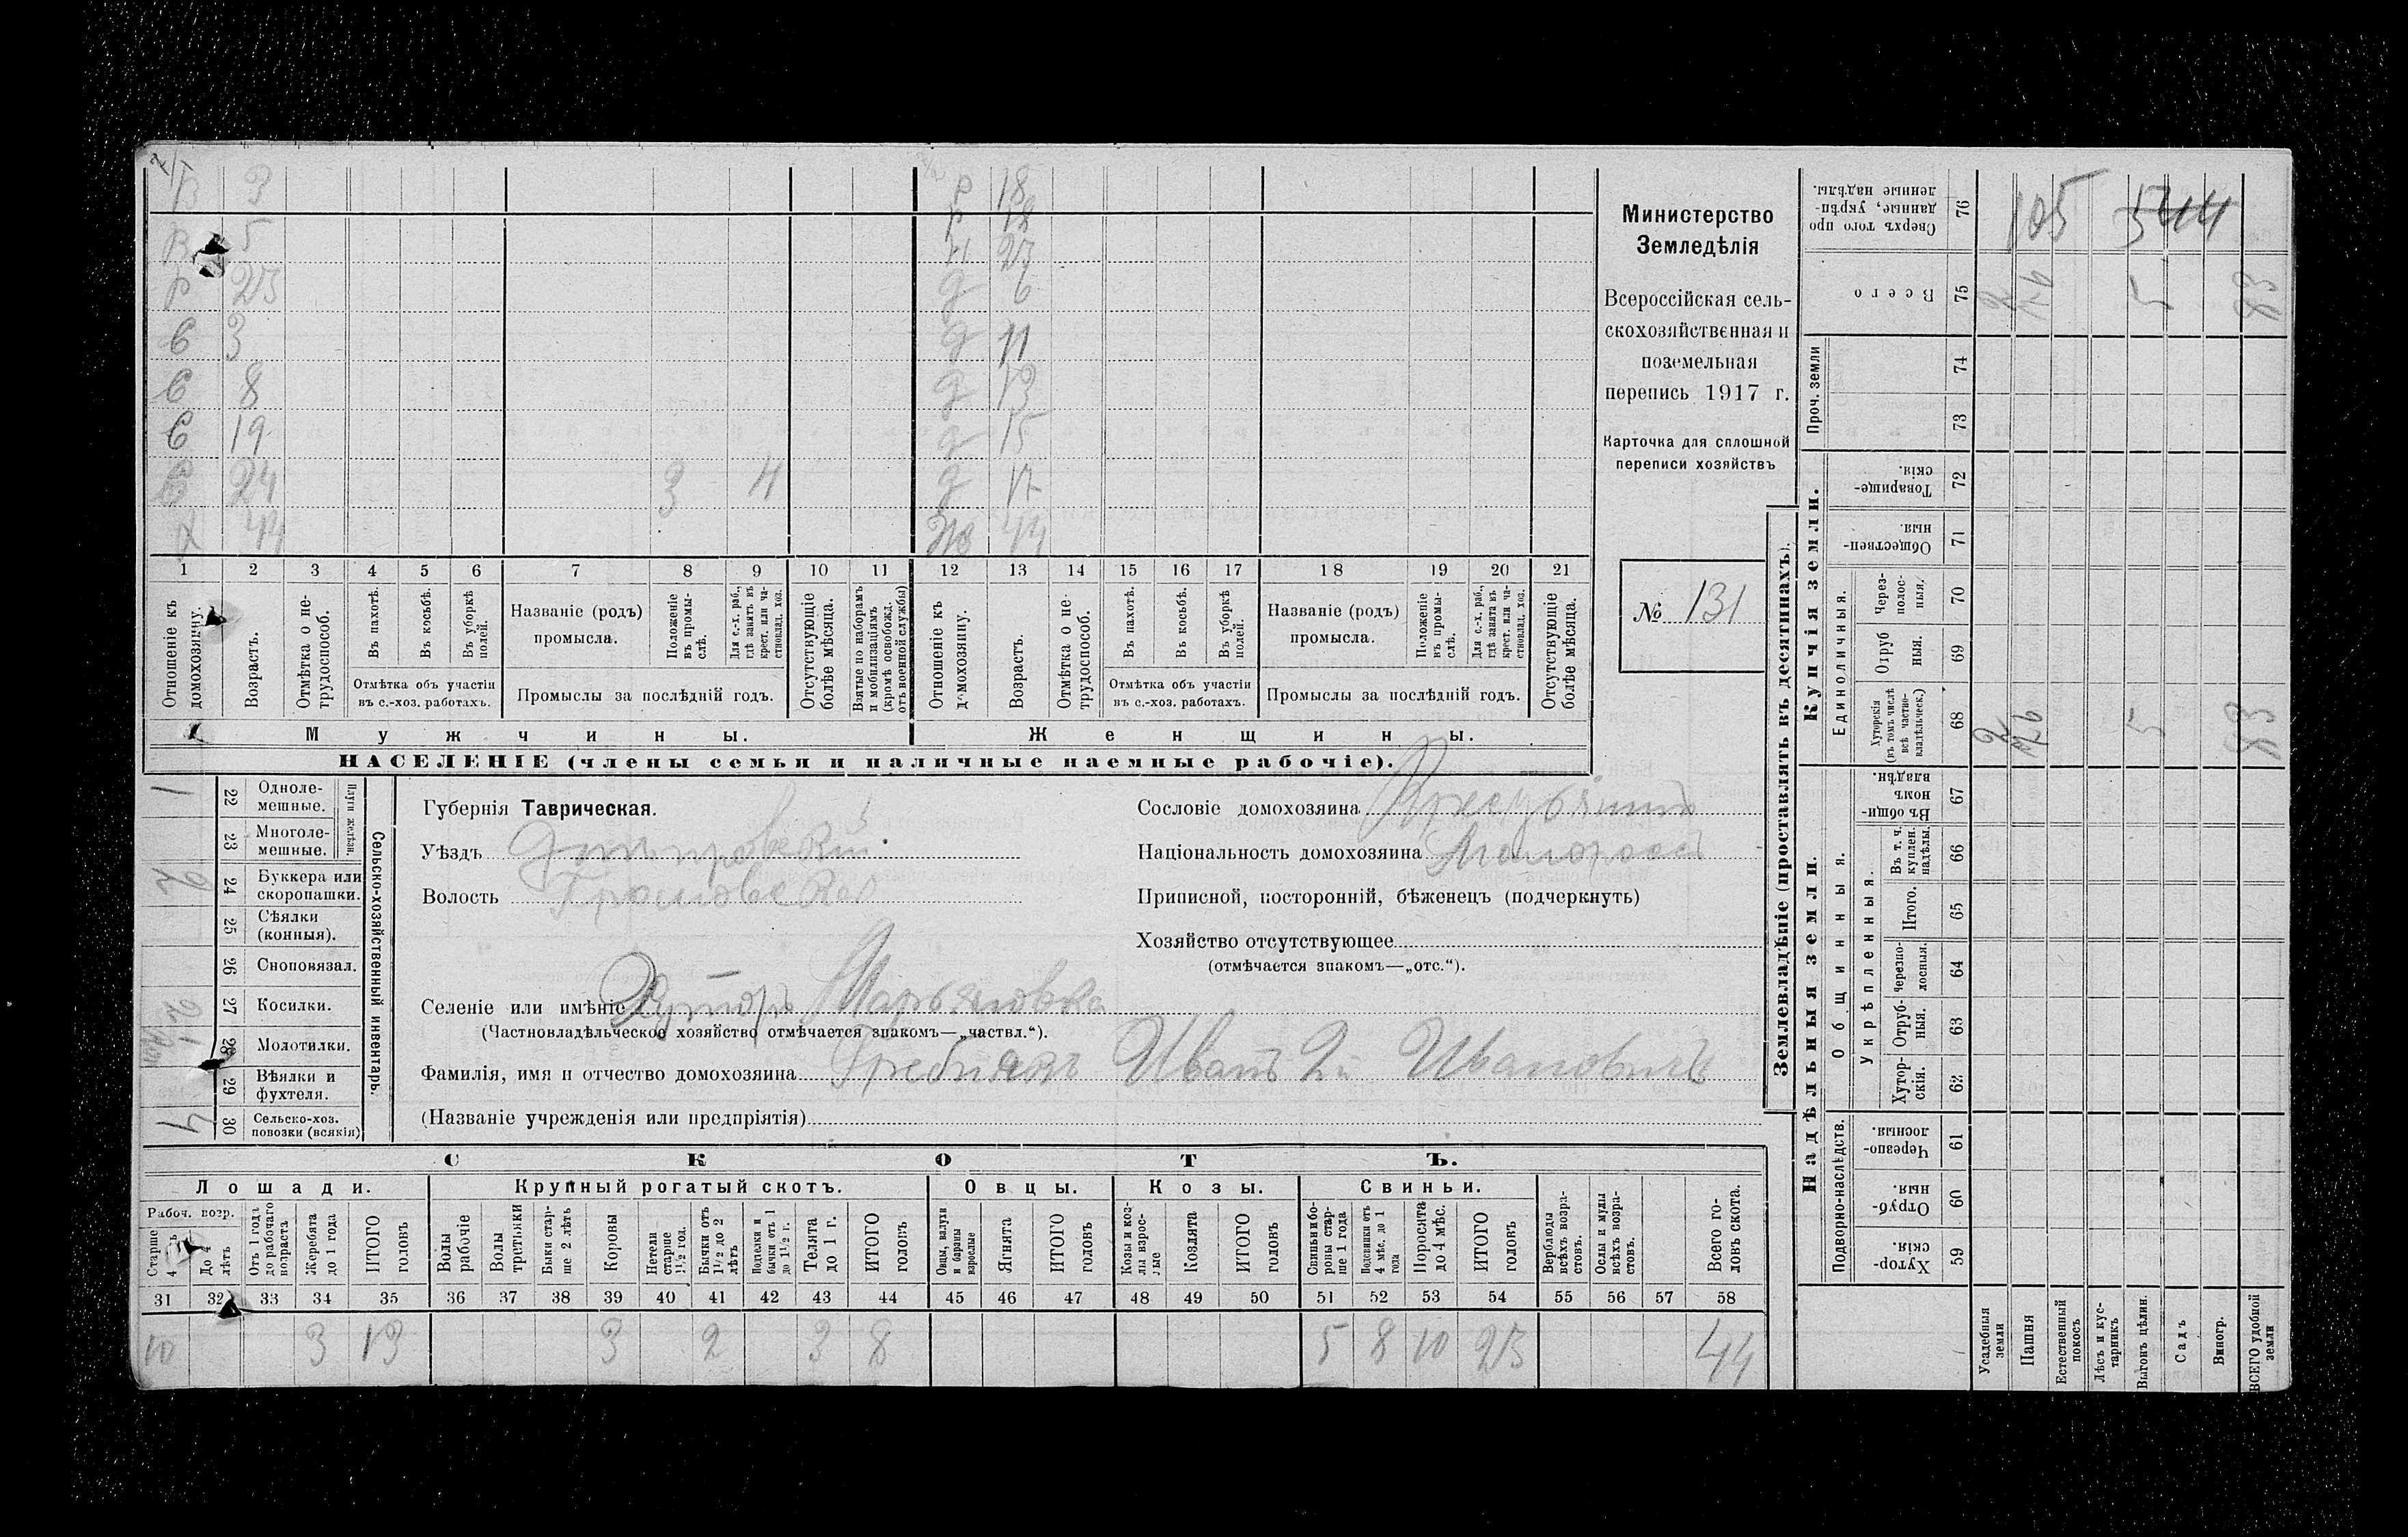 В 3 Р 18
В 5 Р 18
Р 25 Н 27
С 3 Д 6
С 8 Д 11
С 19 Д 13
Д 15
С 24 3 4 Д 17
Х 44 Ж 44
1 2 3 4 5 6 7 8 9 10 11 12 13 14 15 16 17 18 19 20 21
Отношеніе къ домохозяину.
Возрастъ.
Отмѣтка о нетрудоспособ.
Въ пахотѣ.
Въ косьбѣ.
Въ уборкѣ полей.
Отмѣтка объ участіи въ с.-хоз. работахъ.
Названіе (родъ) промысла.
Положеніе въ промыслѣ.
Для с.-х. раб., гдѣ занятъ въ крест. или частновлад. хоз.
Промыслы за послѣдній годъ.
Отсутствующіе болѣе мѣсяца.
Взятые по наборамъ и мобилизаціямъ (кромѣ освобожд. отъ военной службы)
Отношеніе къ домохозяину.
Возрастъ.
Отмѣтка о нетрудоспособ.
Въ пахотѣ.
Въ косьбѣ.
Въ уборкѣ полей.
Отмѣтка объ участіи въ с.-хоз. работахъ.
Названіе (родъ) промысла.
Положеніе въ промыслѣ.
Для с.-х. раб., гдѣ занята въ крест. или частновлад. хоз.
Промыслы за послѣдній годъ.
Отсутствующіе болѣе мѣсяца.
Мужчины. Женщины.
НАСЕЛЕНІЕ (члены семьи и наличные наемные рабочіе).
Министерство
Земледѣлія
Всероссійская сель-
скохозяйственная и
поземельная
перепись 1917 г.
Карточка для сплошной
переписи хозяйствъ
№ 131
Сельско-хозяйственный инвентарь.
Плуги желѣзн.
1 22 Одноле-мешные.
23 Многоле-мешные.
2 24 Буккера или скоропашки.
25 Сѣялки (конныя).
26 Сноповязал.
27 Косилки.
28 Молотилки.
29 Вѣялки и фухтеля.
4 30 Сельско-хоз. повозки (всякія)
Губернія Таврическая.
Уѣздъ Днѣпровскій.
Волость Громовская
Селеніе или имѣніе Хуторъ Марьяновка
(Частновладѣльческое хозяйство отмѣчается знакомъ—„частвл.“).
Фамилія, имя и отчество домохозяина Гребнякъ Иванъ 2й Ивановичъ
(Названіе учрежденія или предпріятія)
Сословіе домохозяина Крестьянинъ
Національность домохозяина Малороссъ
Приписной, посторонній, бѣженецъ (подчеркнуть)
Хозяйство отсутствующее
(отмѣчается знакомъ—„отс.“).
СКОТЪ.
Лошади. Крупный рогатый скотъ. Овцы. Козы. Свиньи.
Рабоч. возр.
Старше 4
До 4 лѣтъ
Отъ 1 года до рабочаго возраста
Жеребята до 1 года
ИТОГО головъ
Волы рабочіе
Волы третьяки
Быки старше 2 лѣтъ
Коровы
Нетели старше 1½ год.
Бычки отъ 1½ до 2 лѣтъ
Подтелки и бычки отъ 1 до 1½ г.
Телята до 1 г.
ИТОГО головъ
Овцы, валухи и бараны взрослые
Ягнята
ИТОГО головъ
Козы и козлы взрослые
Козлята
ИТОГО головъ
Свиньи и боровы старше 1 года
Подсвинки отъ 4 мѣс. до 1 года
Поросята до 4 мѣс.
ИТОГО головъ
Верблюды всѣхъ возрастовъ.
Ослы и мулы всѣхъ возрастовъ.
Всего головъ скота.
31 32 33 34 35 36 37 38 39 40 41 42 43 44 45 46 47 48 49 50 51 52 53 54 55 56 57 58
10 3 13 3 2 3 8 5 8 10 23 44
Землевладѣніе (проставлять въ десятинахъ).
Купчія земли.
Надѣльныя земли.
Сверхъ того проданные, укрѣпленные надѣлы. 76 105 544
Всего 75 2 5 83
Проч. земли
74
73
Товарищескія. 72
Общественныя. 71
Единоличныя.
Черезполосныя. 70
Отрубныя. 69
Хуторскія (въ томъ числѣ всѣ частновладѣльческ.) 68 2 76 5 83
Общинныя.
Въ общинномъ владѣн. 67
Укрѣпленныя.
Въ т. ч. куплен. надѣлы. 66
Итого. 65
Черезполосныя. 64
Отрубныя. 63
Хуторскія. 62
Подворно-наслѣдств.
Черезполосныя. 61
Отрубныя. 60
Хуторскія. 59
Усадебныя земли
Пашня
Естественный покосъ
Лѣсъ и кустарникъ
Выгонъ цѣлин.
Садъ
Виногр.
ВСЕГО удобной земли